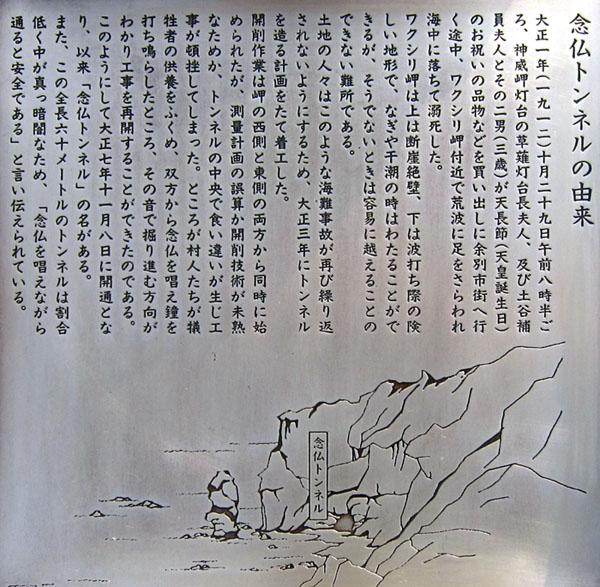 念仏トンネルの由来
大正一年(一九一二)十月二十九日午前八時半ご
ろ、神威岬灯台の草薙灯台長夫人、及び土谷補
員夫人とその二男(三歳)が天長節(天皇誕生日)
のお祝いの品物などを買い出しに余別市街へ行
く途中、ワクシリ岬付近で荒波に足をさらわれ
海中に落ちて溺死した。
ワクシリ岬は上は断崖絶壁、下は波打ち際の険
しい地形で、なぎや干潮の時はわたることがで
きるが、そうでないときは容易に越えることの
できない難所である。
土地の人々はこのような海難事故が再び繰り返
されないようにするため、大正三年にトンネル
を造る計画をたて着工した。
開削作業は岬の西側と東側の両方から同時に始
められたが、測量計画の誤算か開削技術が未熟
なためか、トンネルの中央で食い違いが生じ工
事が頓挫してしまった。ところが村人たちが犠
牲者の供養をふくめ、双方から念仏を唱え鐘を
打ち鳴らしたところ、その音で掘り進む方向が
わかり工事を再開することができたのである。
このようにして大正七年十一月八日に開通とな
り、以来「念仏トンネル」の名がある。
また、この全長六十メートルのトンネルは割合
低く中が真っ暗闇なため、「念仏を唱えながら
通ると安全である」と言い伝えられている。
念仏トンネル